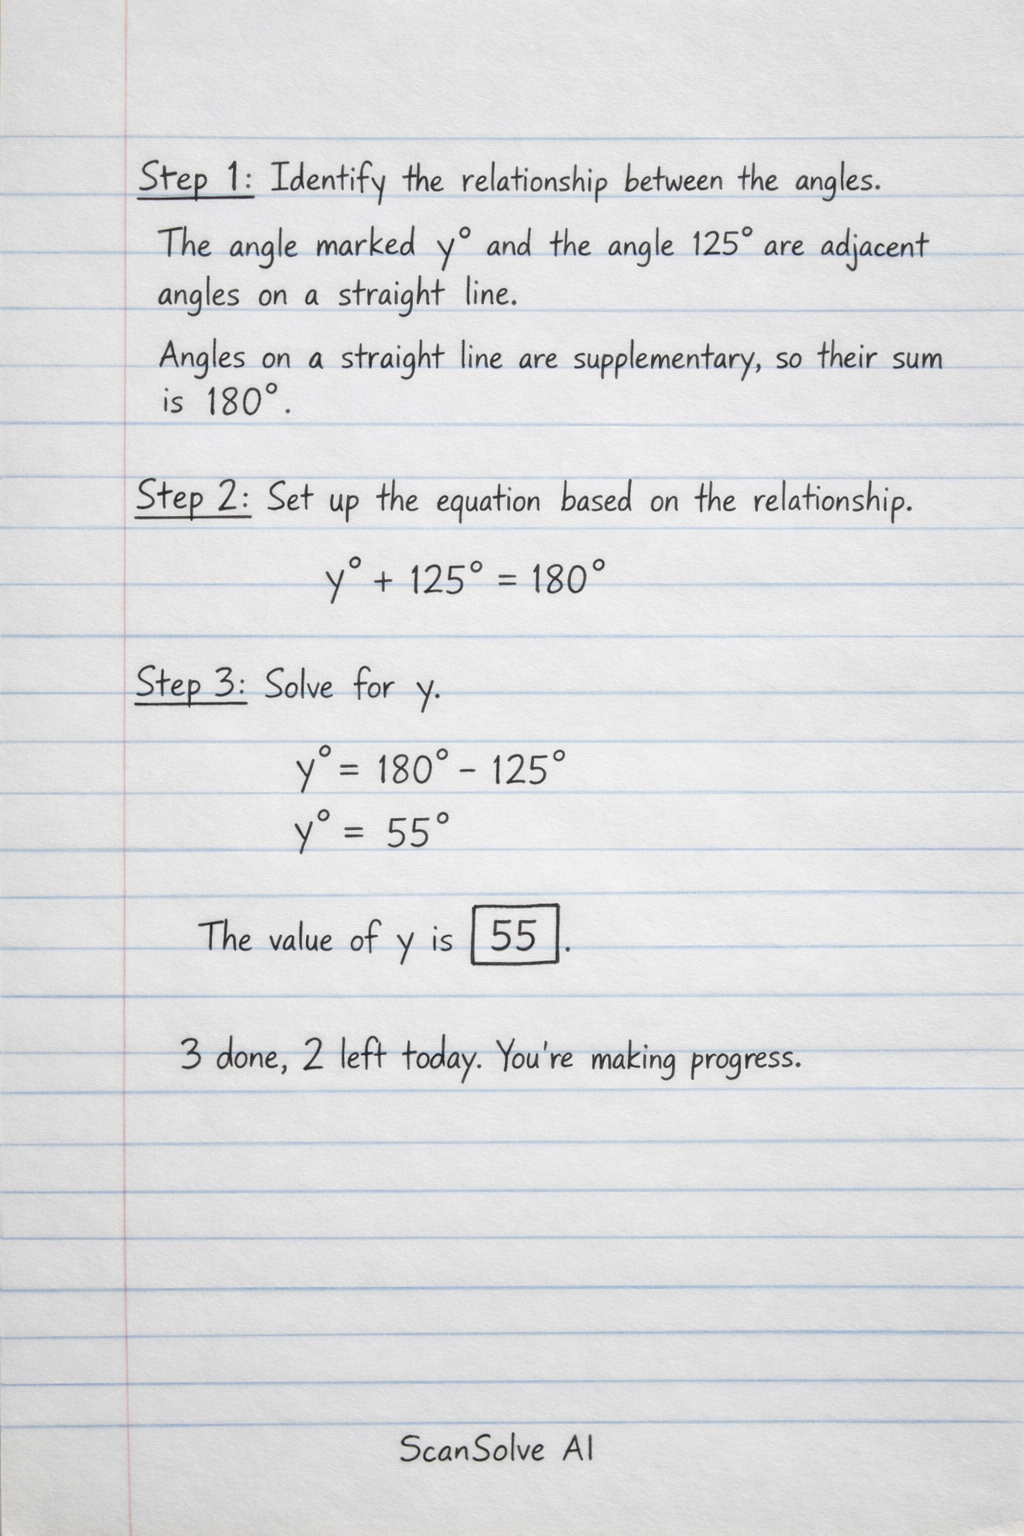 Step 1: Identify the relationship between the angles.
The angle marked y° and the angle 125° are adjacent
angles on a straight line.
Angles on a straight line are supplementary, so their sum
is 180°.
Step 2: Set up the equation based on the relationship.
y° + 125° = 180°
Step 3: Solve for y.
y° = 180° - 125°
y° = 55°
The value of y is 55.
3 done, 2 left today. You're making progress.
ScanSolve AI